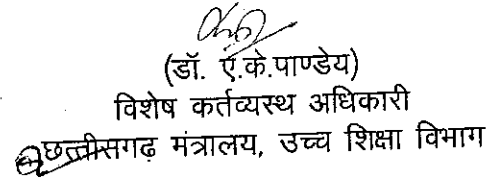 (डॉ. ए.के.पाण्डेय)
विशेष कर्तव्यस्थ अधिकारी
छत्तीसगढ़ मंत्रालय, उच्च शिक्षा विभाग